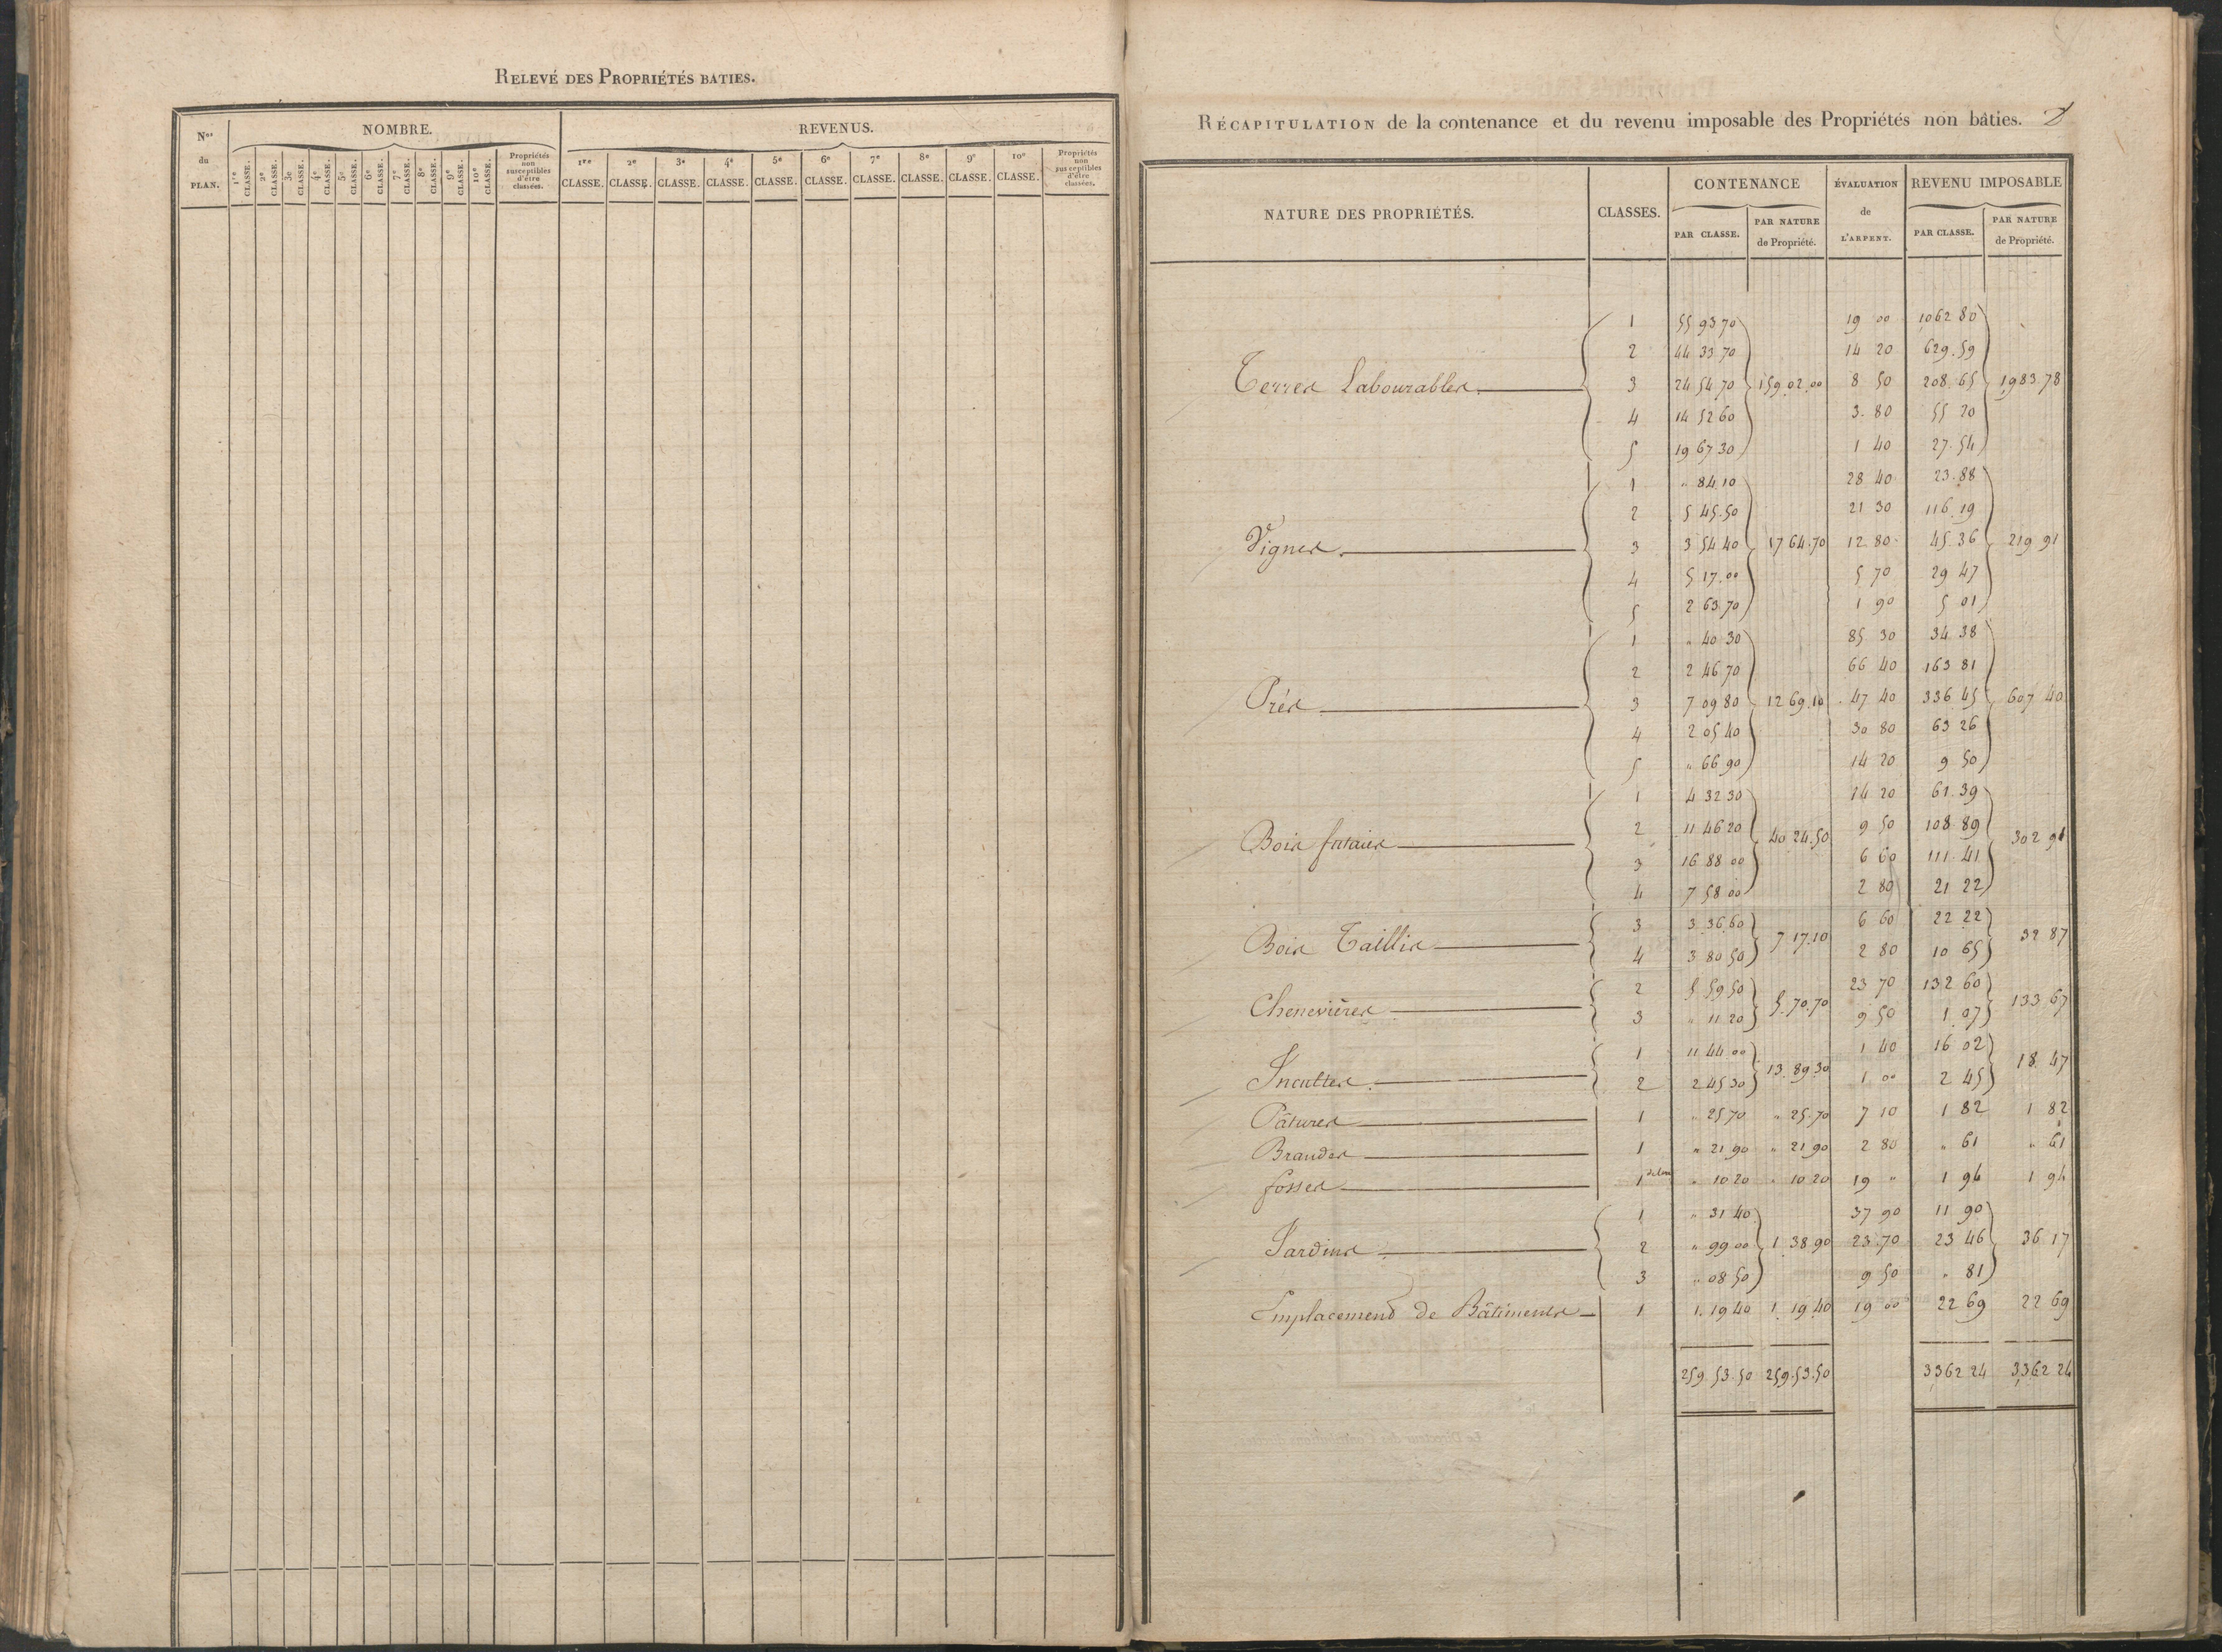 RELEVÉ DES PROPRIÉTÉS BATIES.
Nos du PLAN. NOMBRE. REVENUS.
1re CLASSE. 2e CLASSE. 3e CLASSE. 4e CLASSE. 5e CLASSE. 6e CLASSE. 7e CLASSE. 8e CLASSE. 9e CLASSE. 10e CLASSE. Propriétés non susceptibles d'être classées. 1re CLASSE. 2e CLASSE. 3e CLASSE. 4e CLASSE. 5e CLASSE. 6e CLASSE. 7e CLASSE. 8e CLASSE. 9e CLASSE. 10e CLASSE. Propriétés non susceptibles d'être classées.
RÉCAPITULATION de la contenance et du revenu imposable des Propriétés non bâties.
NATURE DES PROPRIÉTÉS. CLASSES. CONTENANCE ÉVALUATION de L'ARPENT. REVENU IMPOSABLE
PAR CLASSE. PAR NATURE de Propriété. PAR CLASSE. PAR NATURE de Propriété.
1 55 93 70 19 00 1062 80
2 44 33 70 14 20 629.59
Terres Labourables 3 24 54 70 159 02 00 8 50 208 65 1983 78
4 14 52 60 3.80 55 20
5 19 67 30 1 40 27.54
1 " 84 10 28 40 23.88
2 5 45.50 21 30 116.19
Vignes 3 3 54 40 17 64.70 12.80 45 36 219 91
4 5 17.00 5 70 29 47
5 2 63.70 1 90 5 01
1 " 40 30 85 30 34 38
2 2 46 70 66 40 163 81
Prés 3 7 09 80 12 69.10 47 40 336 45 607 40
4 2 05 40 30 80 63 26
5 " 66 90 14 20 9 50
1 4 32 30 14 20 61.39
2 11 46 20 9 50 108 89
Bois futaies 40 24.50 302 91
3 16 88 00 6 60 111 41
4 7 58 00 2 80 21 22
3 3 36 60 6 60 22 22
Bois Taillis 7 17.10 32 87
4 3 80 50 2 80 10 65
2 5 59 50 23 70 132 60
Chenevières 5.70.70 133 67
3 " 11 20 9 50 1 07
1 11 44 00 1 40 16 02
Incultes 13.89 30 18 47
2 2 45 30 1 00 2 45
Pâtures 1 " 25 70 " 25.70 7 10 1 82 1 82
Brandes 1 " 21 90 " 21 90 2 80 " 61 " 61
fosses 1 " 10 20 " 10 20 19 " 1 94 1 94
1 " 31 40 37 90 11 90
Jardins 2 " 99 00 1 38 90 23.70 23 46 36 17
3 " 08 50 9 50 " 81
Emplacement de Bâtiments 1 1.19 40 1 19 40 19 00 22 69 22 69
259.53.50 259.53.50 3362 24 3362 24